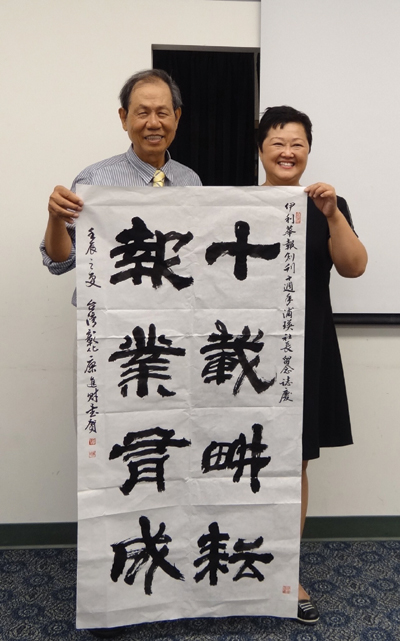 伊利華報創刊十週年浦瑛社長留念誌慶
十載畊耘
報業有成
壬辰之夏 台灣彰化康進財書賀